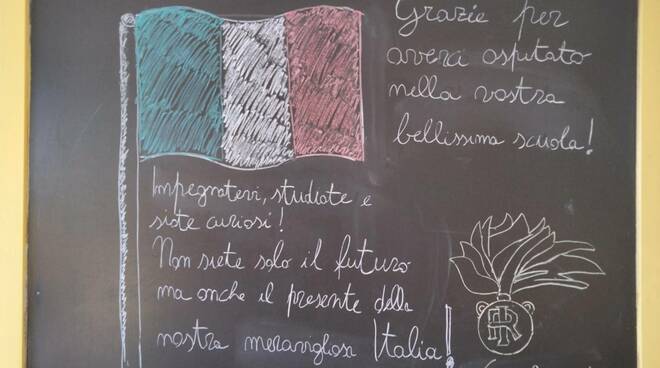 Grazie per
averci ospitato
nella vostra
bellissima scuola!
Impegnatevi, studiate e
siate curiosi!
Non siete solo il futuro
ma anche il presente della
nostra meravigliosa Italia!
RI